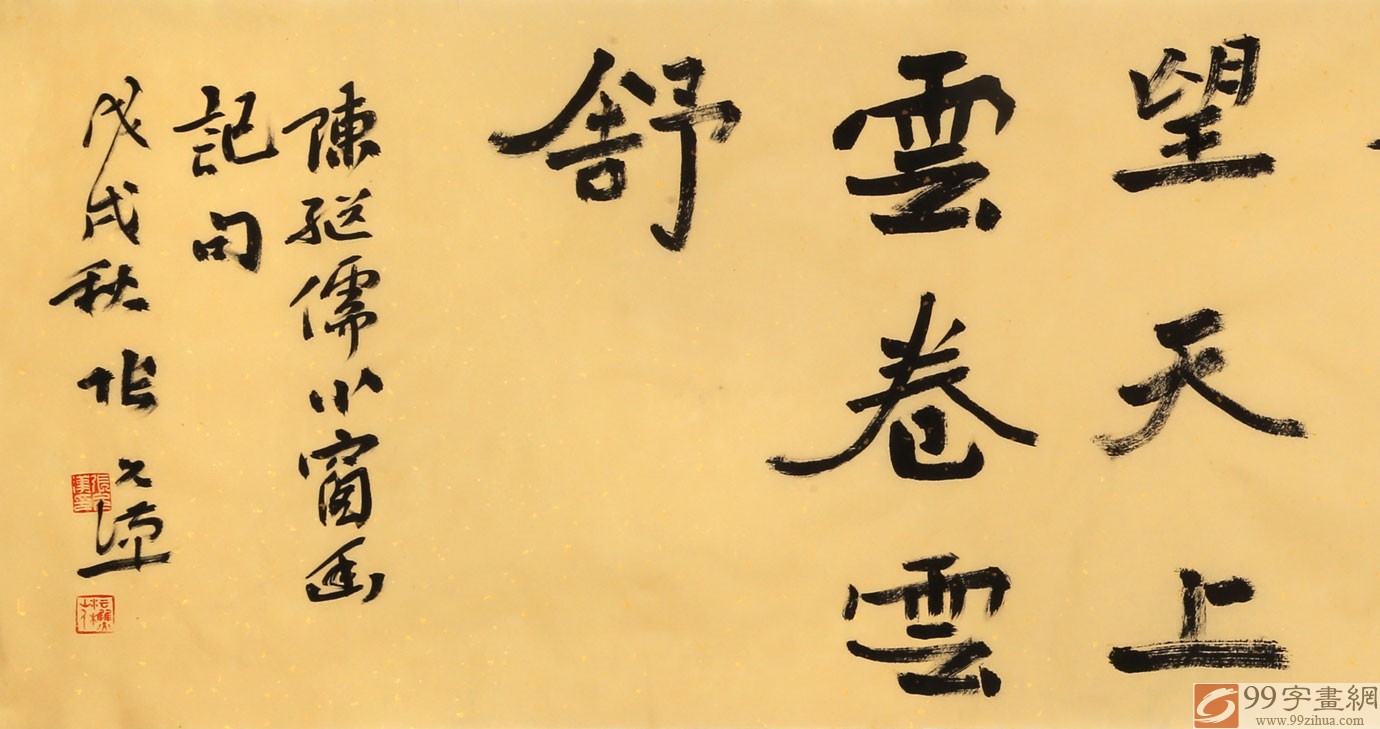 望天上
雲卷雲
舒
陳繼儒小窗幽
記句
戊戌秋張
99字畫網
www.99zihua.com